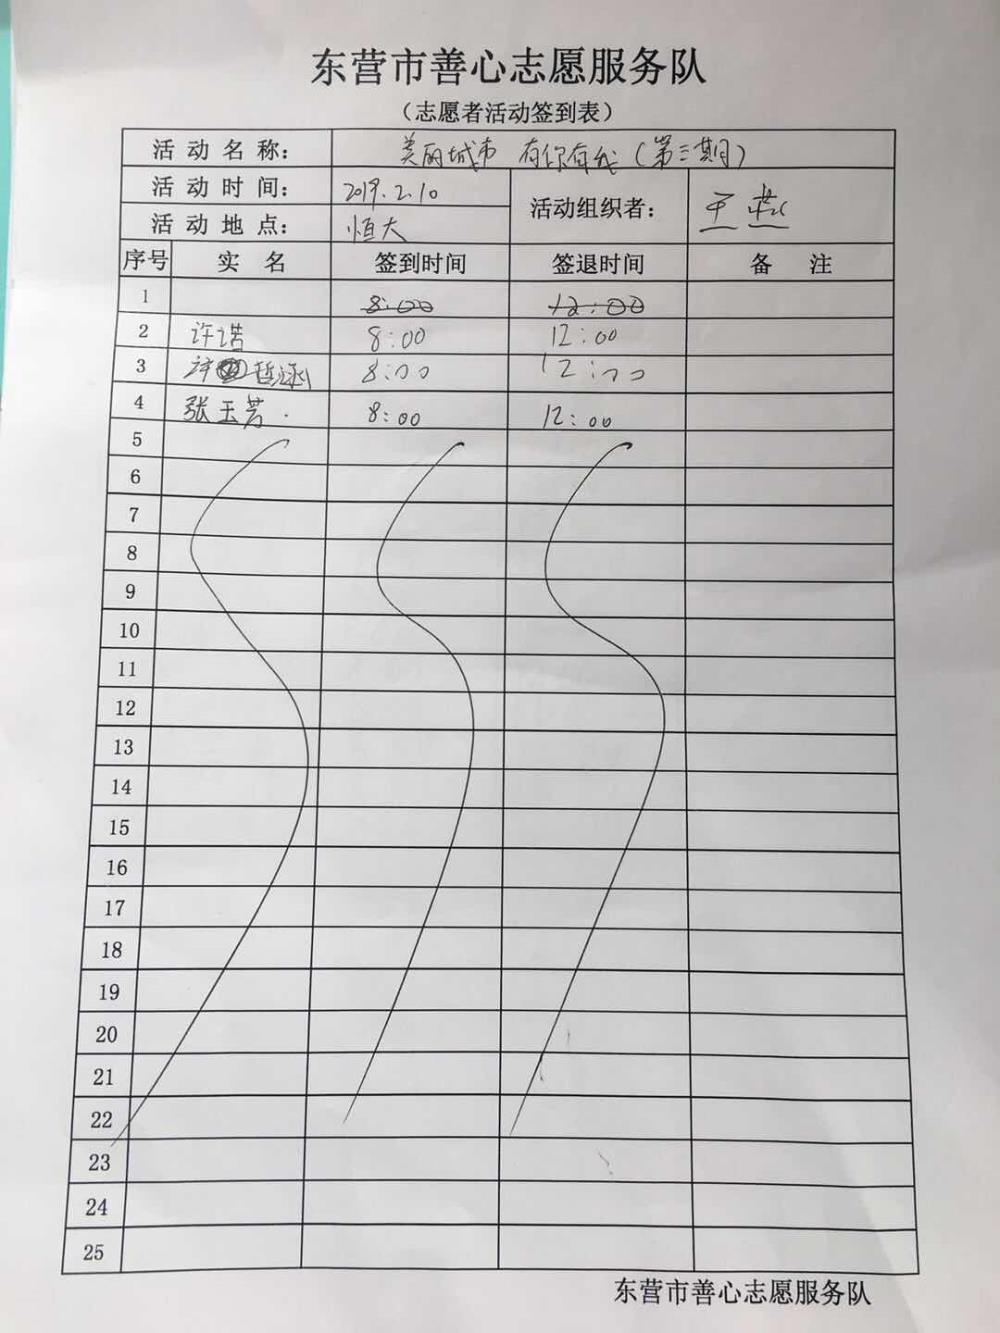 东营市善心志愿服务队
（志愿者活动签到表）
活动名称： 美丽城市 有你有我（第三期）
活动时间： 2019.2.10 活动组织者： 王燕
活动地点： 恒大
序号 实名 签到时间 签退时间 备注
1 8:00 12:00
2 许诺 8:00 12:00
3 许哲涵 8:00 12:00
4 张玉芳. 8:00 12:00
5
6
7
8
9
10
11
12
13
14
15
16
17
18
19
20
21
22
23
24
25
东营市善心志愿服务队